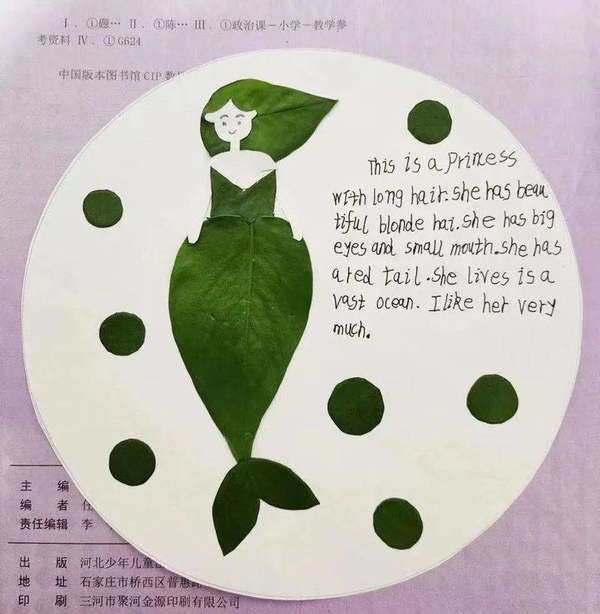 Ⅰ. ①题… Ⅱ. ①陈… Ⅲ. ①政治课－小学－教学参
考资料 Ⅳ. ①G624
中国版本图书馆CIP数
This is a Princess
with long hair. she has beau
tiful blonde hai. she has big
eyes and small mouth. she has
a red tail. she lives is a
vast ocean. I like her very
much.
主 编
编 者
责任编辑 李
出 版 河北少年儿童
地 址 石家庄市桥西区普惠路
印 刷 三河市聚河金源印刷有限公司